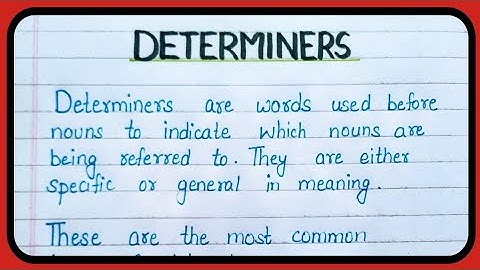 DETERMINERS
Determiners are words used before
nouns to indicate which nouns are
being referred to. They are either
specific or general in meaning.
These are the most common